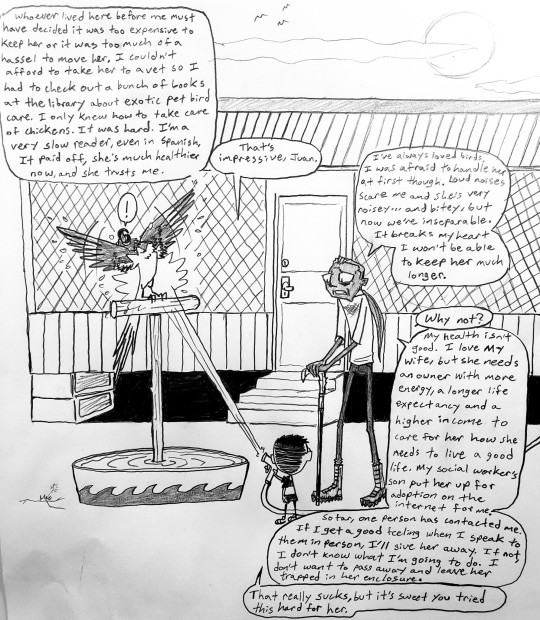 whoever lived here before me must
have decided it was too expensive to
keep her or it was too much of a
hassel to move her. I couldn't
afford to take her to a vet so I
had to check out a bunch of books
at the library about exotic pet bird
care. I only knew how to take care
of chickens. It was hard. I'm a
very slow reader, even in Spanish,
It paid off, she's much healthier
now, and she trusts me.
That's
impressive, Juan.
I've always loved birds.
I was afraid to handle her
at first though. Loud noises
scare me and she's very
noisey... and bitey, but
now we're inseparable.
It breaks my heart
I won't be able
to keep her much
longer.
!
Why not?
My health isn't
good. I love my
wife, but she needs
an owner with more
energy, a longer life
expectancy and a
higher income to
care for her how she
needs to live a good
life. My social worker's
son put her up for
adoption on the
internet for me.
So far, one person has contacted me.
If I get a good feeling when I speak to
them in person, I'll give her away. If not,
I don't know what I'm going to do. I
don't want to pass away and leave her
trapped in her enclosure.
That really sucks, but it's sweet you tried
this hard for her.